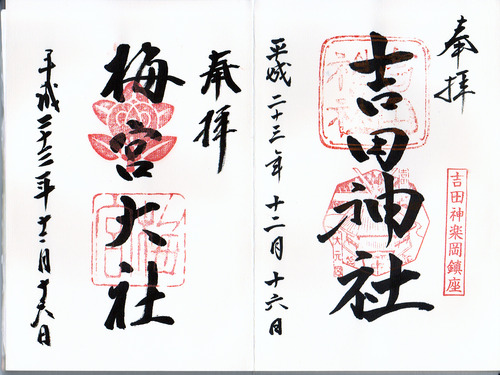 奉拝
吉田神楽岡鎮座
吉田神社
平成二十三年十二月十六日
奉拝
梅宮大社
平成二十三年十二月十六日